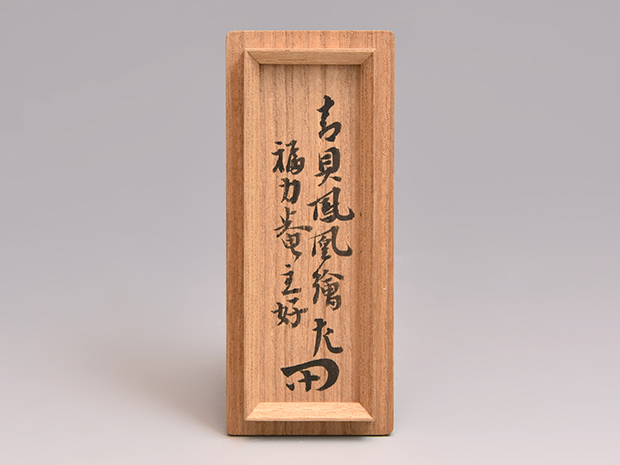 青貝鳳凰繪 左
福力庵主好